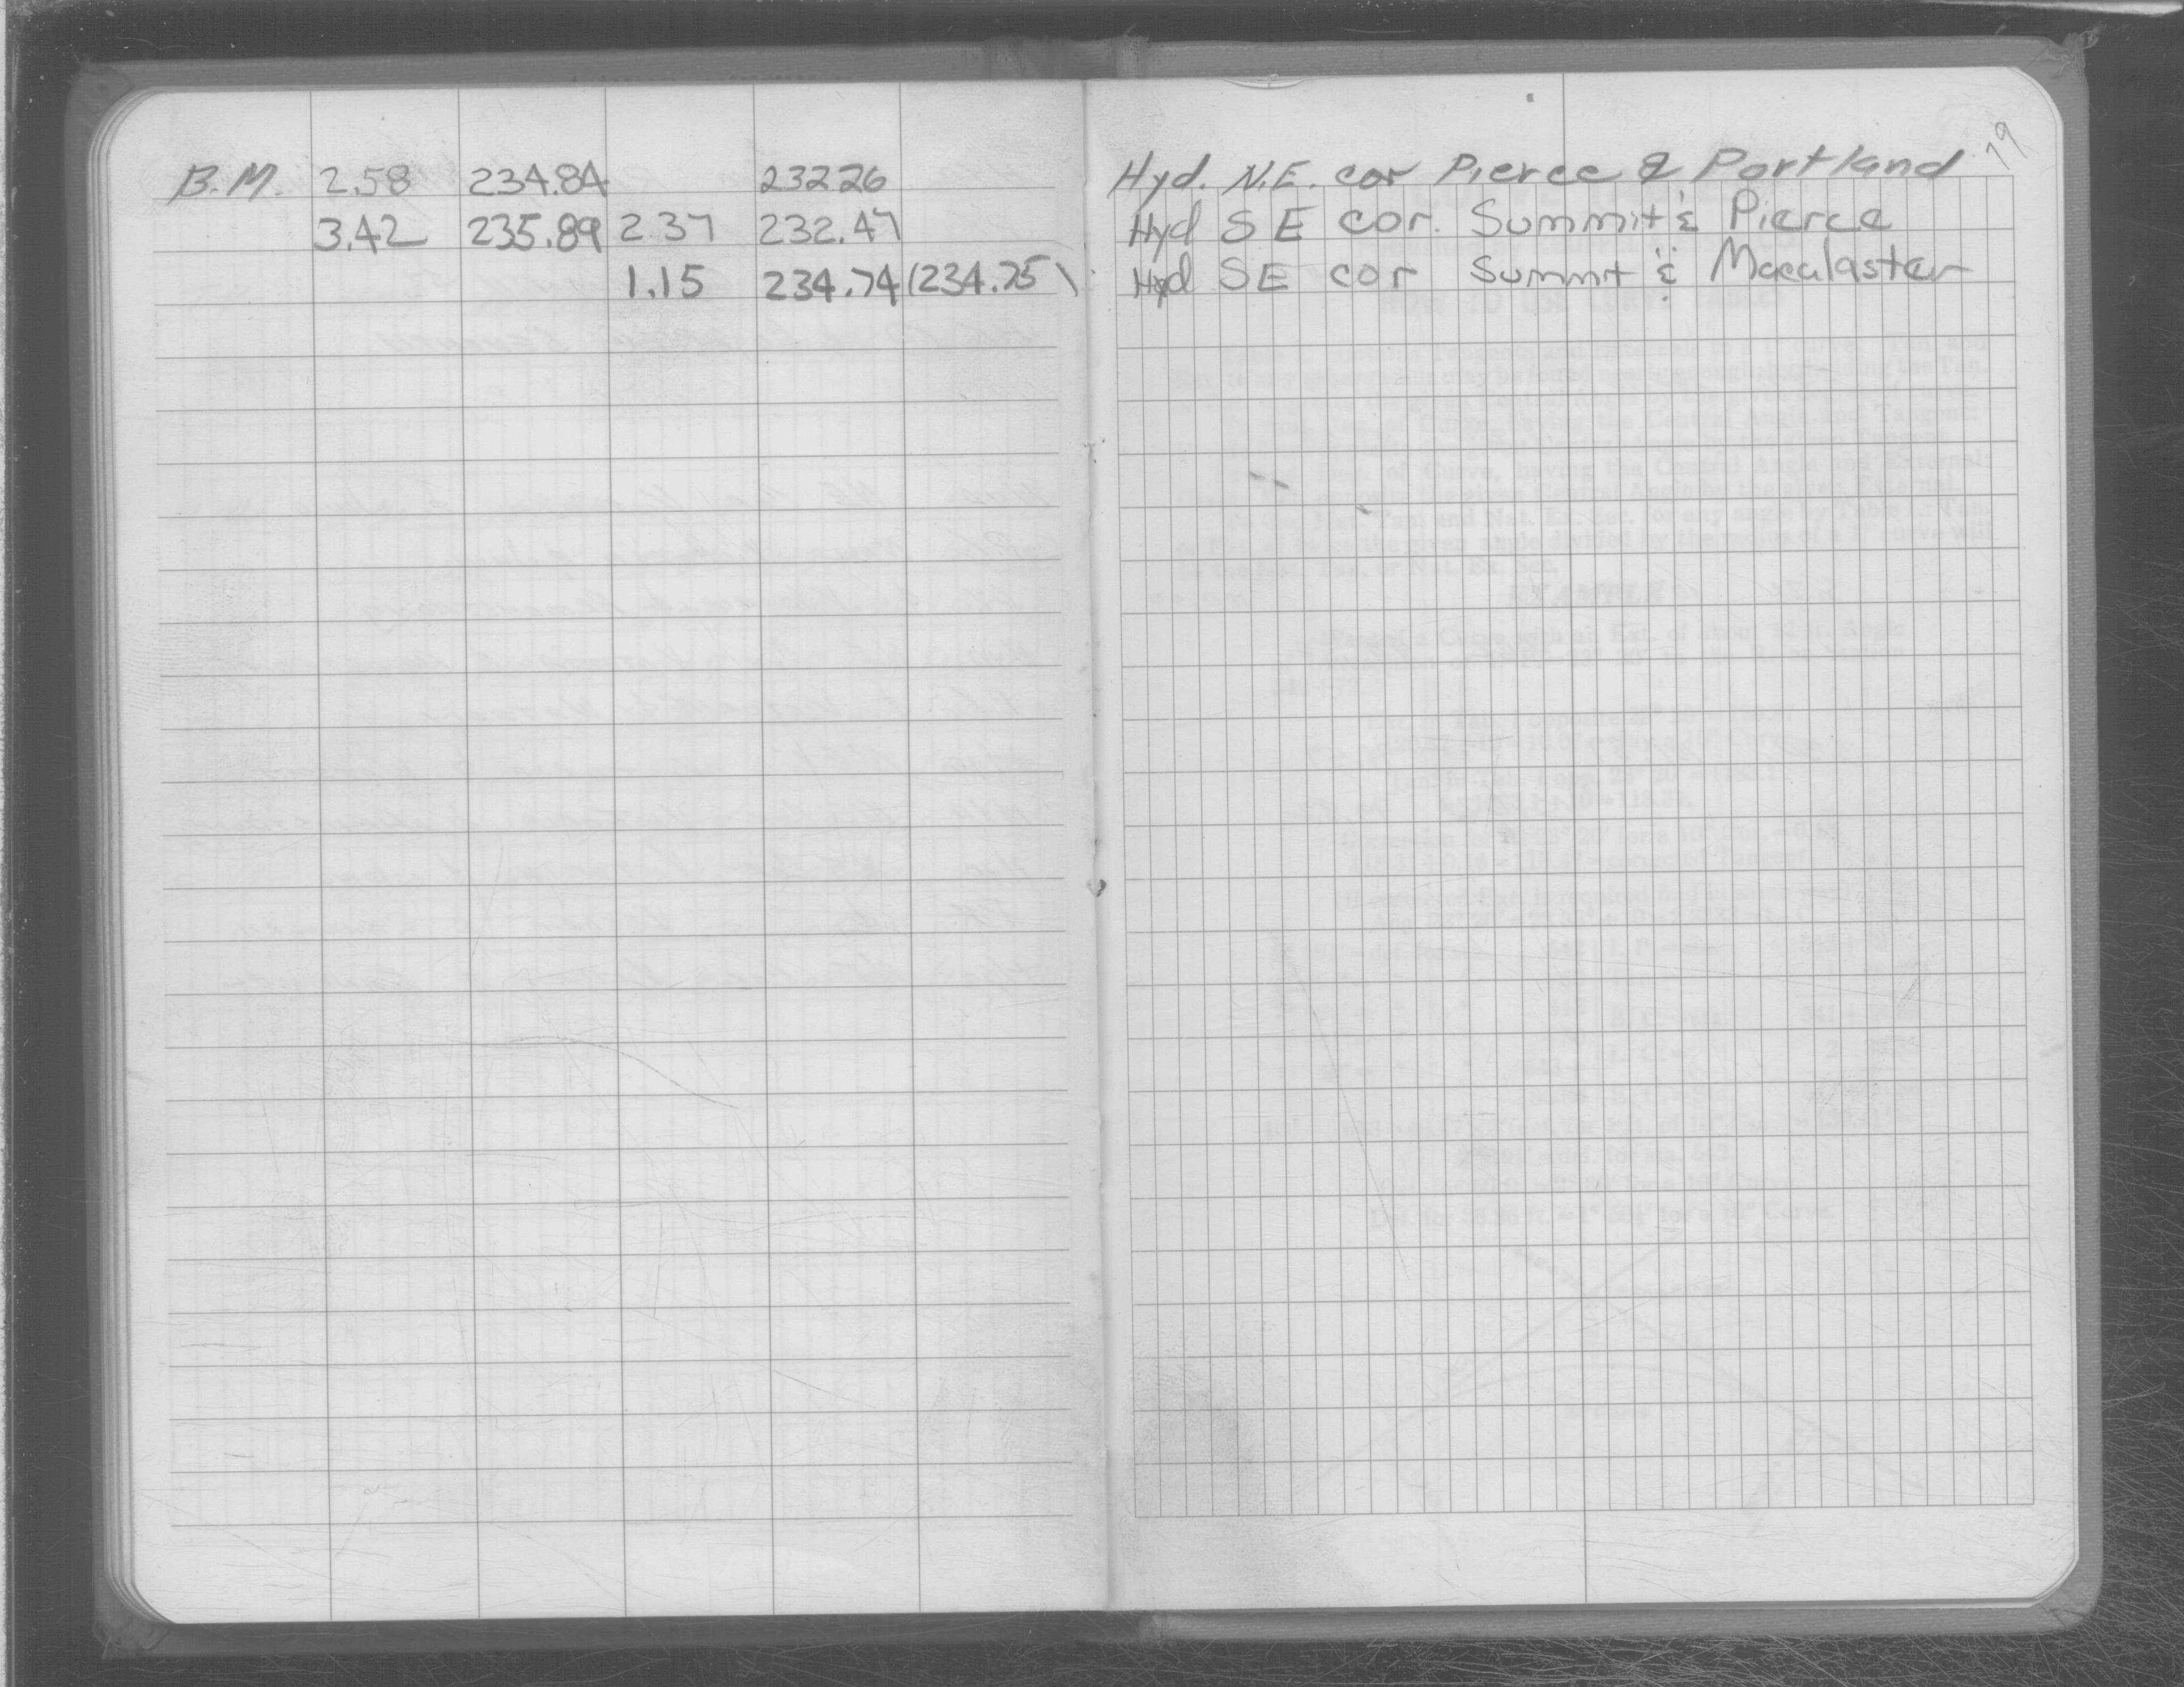 19
B.M. 2.58 234.84 232.26 Hyd. N.E. cor Pierce & Portland
3.42 235.89 2.37 232.47 Hyd S E cor. Summit & Pierce
1.15 234.74 (234.75) Hyd SE cor Summit & Macalaster